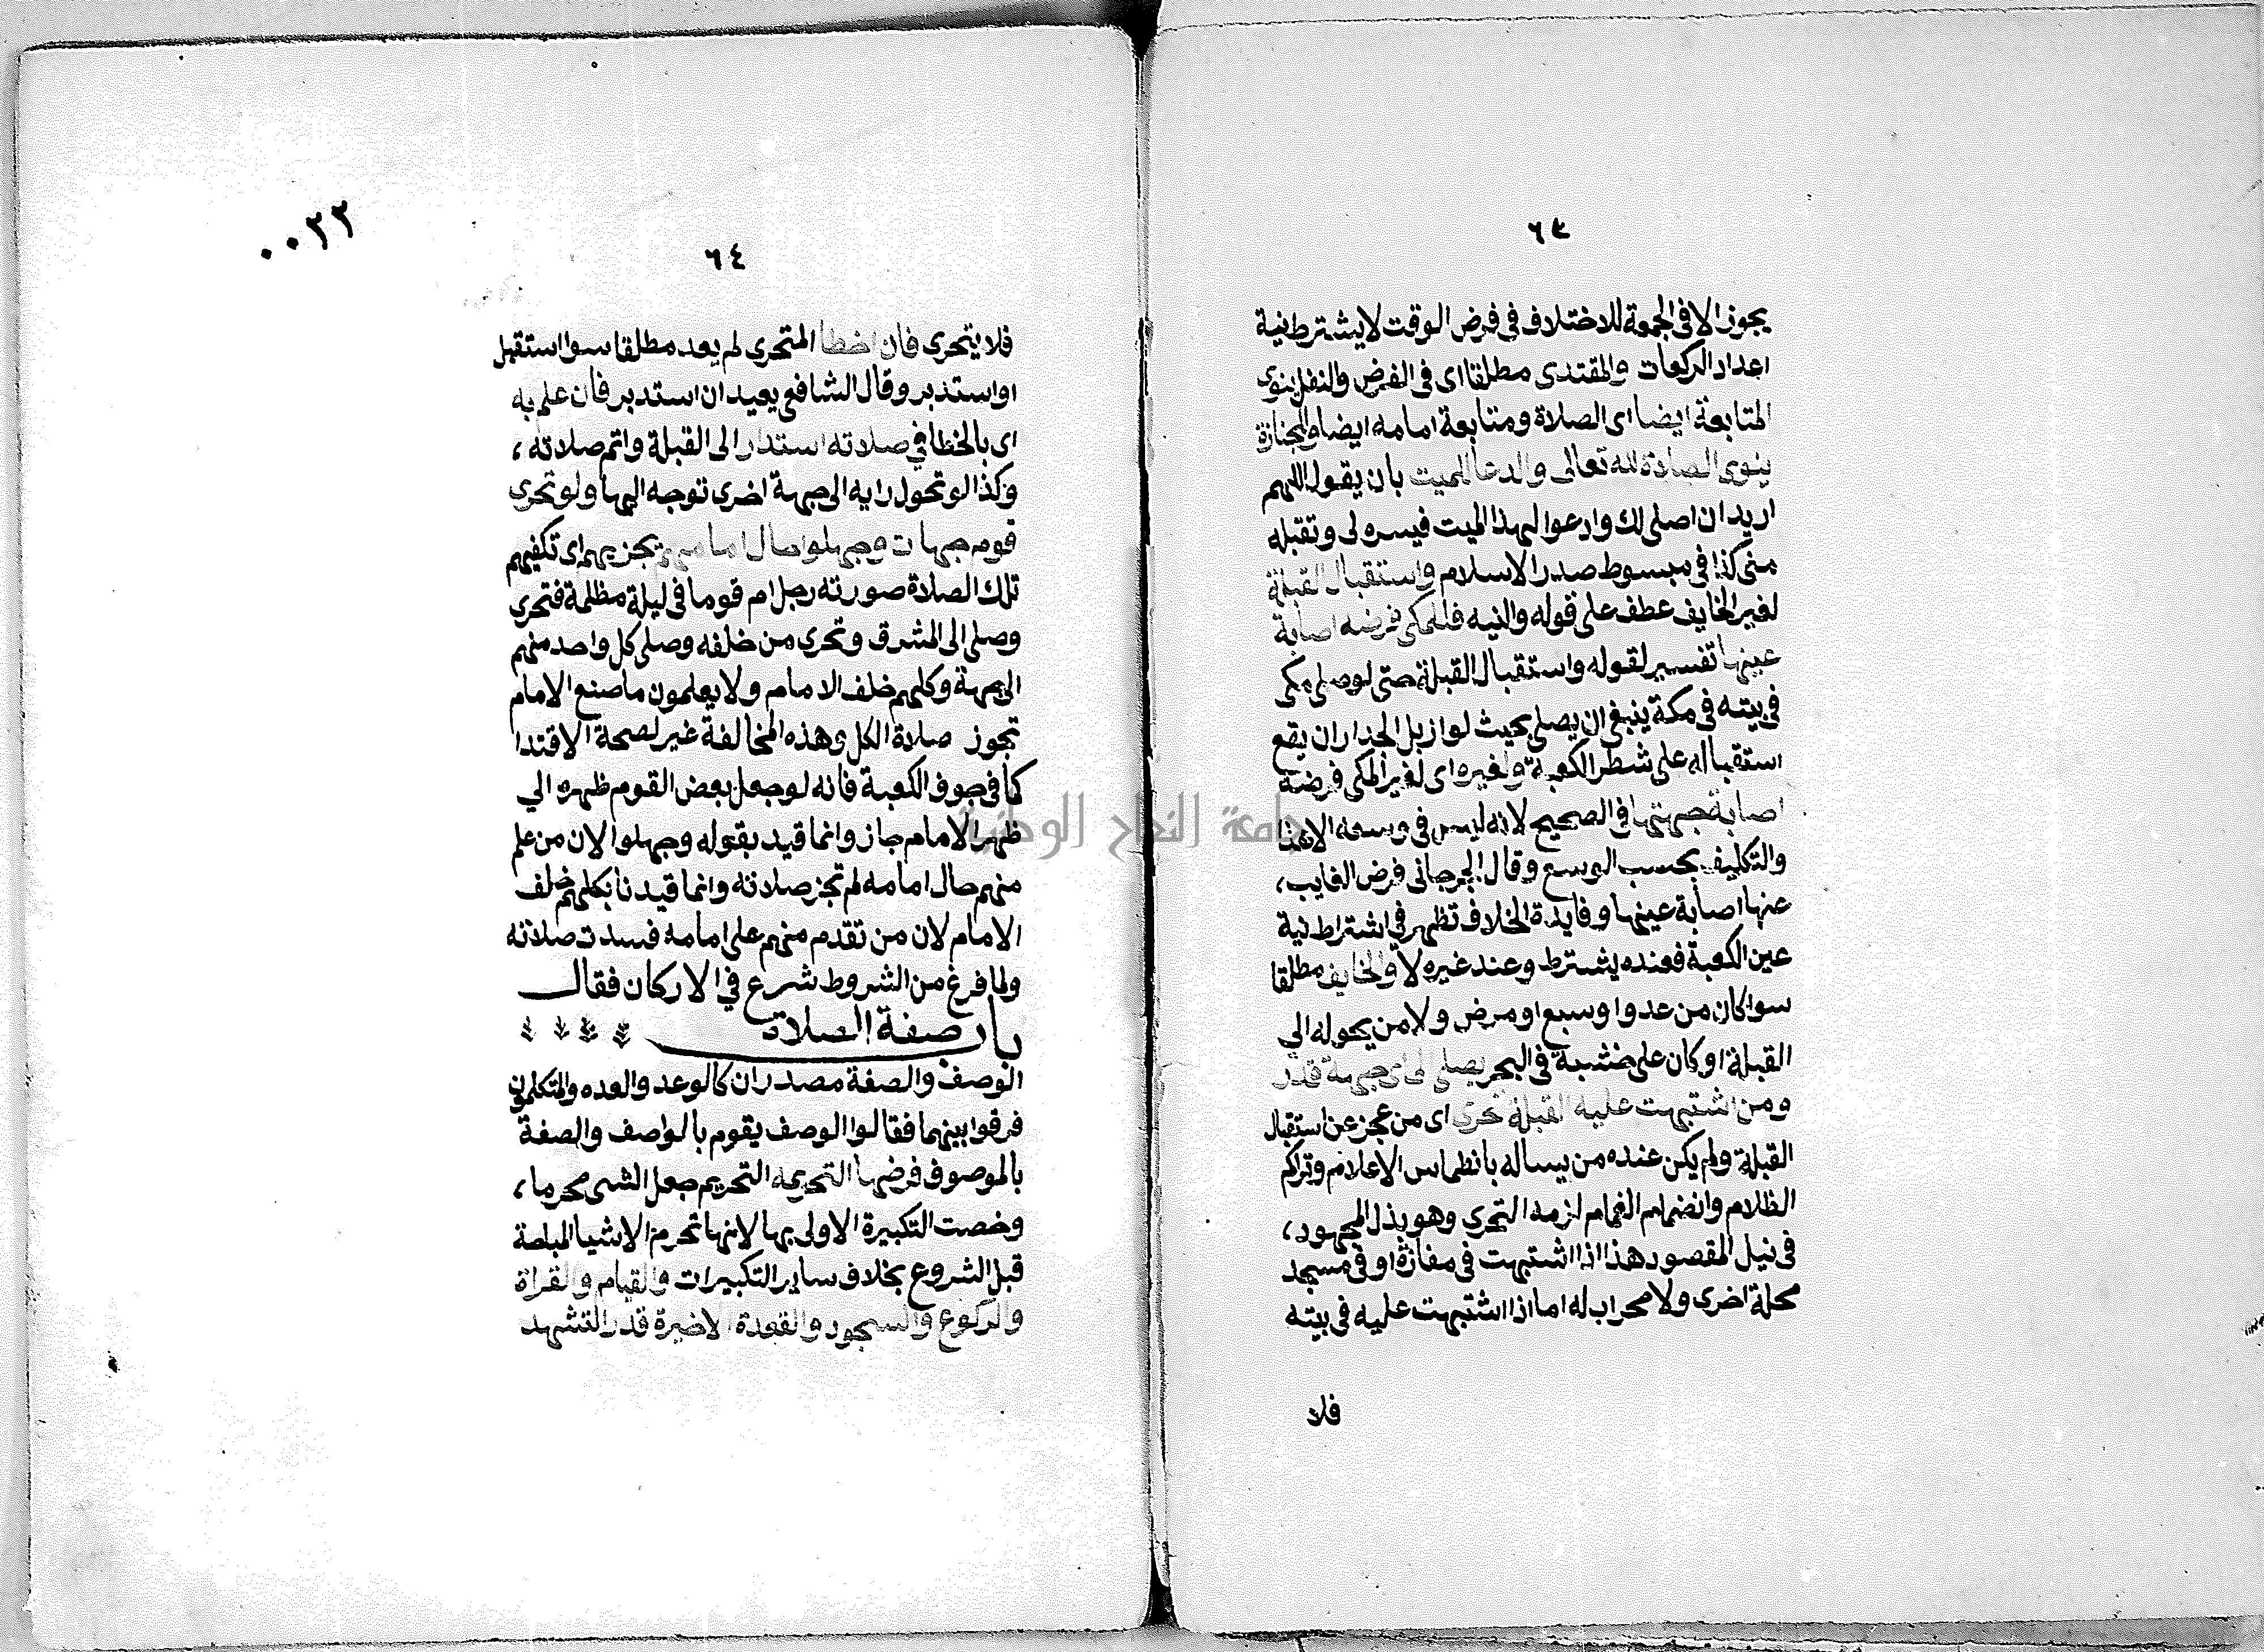 ٦٣
يجوز الا فى الجمعة للاختلاف فى فرض الوقت لا يشترط نية
اعداد الركعات والمقتدى مطلقا اى فى الفرض والنفل ينوى
المتابعة ايضا اى الصلاة ومتابعة امامه ايضا وللجنازة
ينوى الصلاة لله تعالى والدعا للميت بان يقول اللهم
اريد ان اصلى لك وادعوا لهذا الميت فيسره لى وتقبله
منى كذا فى مبسوط صدر الاسلام واستقبال القبلة
لغير الخايف عطف على قوله والنيه فللمكى فرضه اصابة
عينها تفسير لقوله واستقبال القبلة حتى لو صلى مكى
فى بيته فى مكة ينبغى ان يصلى بحيث لو ازيل الجدار ان يقع
استقباله على شطر الكعبة ولغيره اى لغير المكى فرضه
اصابة جهتها فى الصحيح لانه ليس فى وسعه الا هذا
والتكليف بحسب الوسع وقال الجرجانى فرض الغايب،
عنها اصابة عينها وفايدة الخلاف تظهر فى اشتراط نية
عين الكعبة فعنده يشترط وعند غيره لا والخايف مطلقا
سوا كان من عدو او سبع او مرض ولا من يحوله الى
القبلة او كان على خشبة فى البحر يصلى الى اى جهة قدر
ومن اشتبهت عليه القبلة تحرى اى من عجز عن استقبال
القبلة ولم يكن عنده من يساله بانطماس الاعلام وتراكم
الظلام وانضمام الغمام لزمه التحرى وهو بذل المجهود،
فى نيل المقصود هذا اذا اشتبهت فى مفازة او فى مسجد
محلة اخرى ولا محراب له اما اذا اشتبهت عليه فى بيته
فلا
٠٠٣٣
٦٤
فلا يتحرى فان اخطا المتحرى لم يعد مطلقا سوا استقبل
او استدبر وقال الشافعى يعيد ان استدبر فان علم به
اى بالخطا فى صلاته استدار الى القبلة واتم صلاته،
وكذا لو تحول رايه الى جهة اخرى توجه اليها ولو تحرى
قوم جهات وجهلوا حال امامهم يجزيهم اى تكفيهم
تلك الصلاة صورته رجل ام قوما فى ليلة مظلمة فتحرى
وصلى الى المشرق وتحرى من خلفه وصلى كل واحد منهم
الى جهة وكلهم خلف الامام ولا يعلمون ما صنع الامام
تجوز صلاة الكل وهذه المخالفة غير لصحة الاقتدا
كما فى جوف الكعبة فانه لو جعل بعض القوم ظهره الي
ظهر الامام جاز وانما قيد بقوله وجهلوا لان من علم
منهم حال امامه لم تجز صلاته وانما قيدنا بكلهم خلف
الامام لان من تقدم منهم على امامه فسدت صلاته
ولما فرغ من الشروط شرع في الاركان فقال
باب صفة الصلاة
الوصف والصفة مصدران كالوعد والعده والمتكلمون
فرقوا بينهما فقالوا الوصف يقوم بالواصف والصفة
بالموصوف فرضها التحريمه التحريم جعل الشى محرما،
وخصت التكبيرة الاولى بها لانها تحرم الاشيا المباحة
قبل الشروع بخلاف ساير التكبيرات والقيام والقراة
والركوع والسجود والقعدة الاخيرة قدر التشهد
جامعة النجاح الوطنية